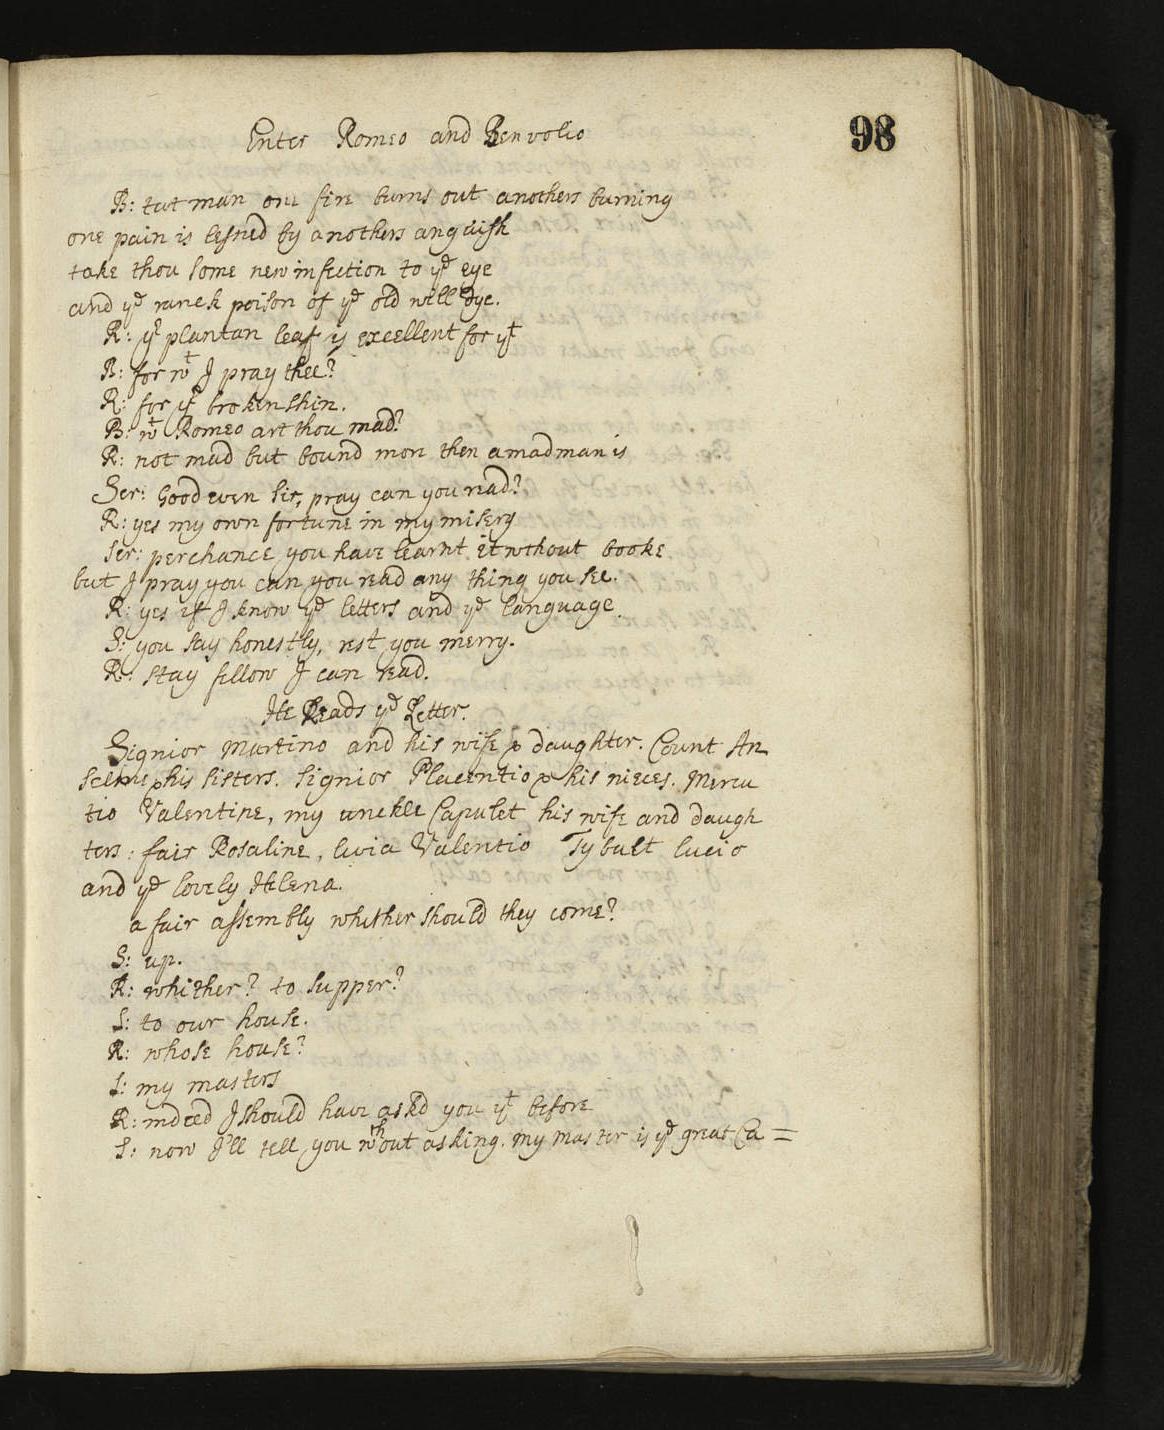 98
Enter Romeo and Benvolio
B: tut man one fire burns out anothers burning
one pain is lesned by anothers anguish
take thou some new infection to yᵉ eye
and yᵉ ranck poison of yᵉ old will dye.
R: yʳ plantan leaf is excellent for yᵗ
B: for wᵗ I pray thee?
R: for yʳ broken shin.
B: wᵗ Romeo art thou mad?
R: not mad but bound more then a madman is
Ser: Good even sir, pray can you read?
R: yes my own fortune in my misery
Ser: perchance you have learnt it wthout booke
but I pray you can you read any thing you see.
R: yes if I know yᵉ letters and yᵉ language.
S: you say honestly, rest you merry.
R: stay fellow I can read.
He Reads yᵉ Letter.
Signior Martino and his wife & daughter. Count An
selme & his sisters. Signior Placentio & his nieces. Mercu
tio Valentine, my unckle Capulet his wife and daugh
ters: fair Rosaline, livia Valentio Tybalt lucio
and yᵉ lovely Helena.
a fair assembly whither should they come?
S: up.
R: whither? to supper?
S: to our house.
R: whose house?
S: my masters
R: indeed I should have askd you yᵗ before
S: now I'll tell you wᵗʰout asking. my master is yᵉ great Ca=